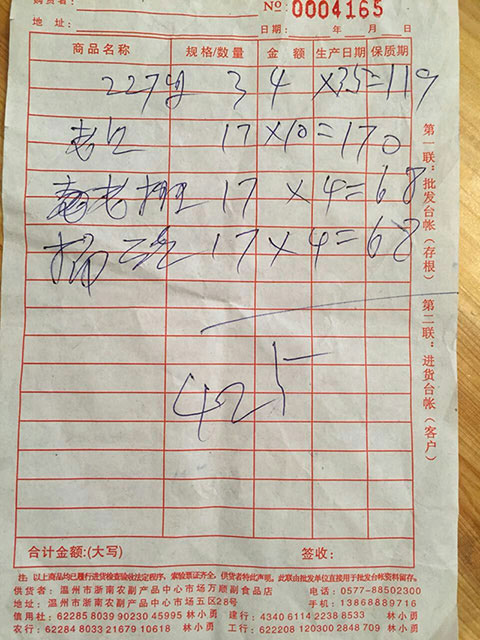 购货者：
No 0004165
地址： 日期： 年 月 日
商品名称 规格/数量 金额 生产日期 保质期
227g 3 4 ×35=119
17×10=170
17 ×4=68
17×4=68
425
第一联：批发台帐（存根） 第二联：进货台帐（客户）
合计金额:(大写) 签收:
注：以上商品均已履行进货检查验收法定程序，索验票证齐全，供货者特此声明。此联由批发单位直接用于批发台帐资料留存。
供货者：温州市浙南农副产品中心市场万顺副食品店 电话：0577-88502300
地址：温州市浙南农副产品中心市场五区28号 手机：13868889716
信用社：62285 8039 90230 45995 林小勇 建行：4340 6114 2238 8533 林小勇
农行：62284 8033 21679 10618 林小勇 工行：622208 120300 2848 709 林小勇